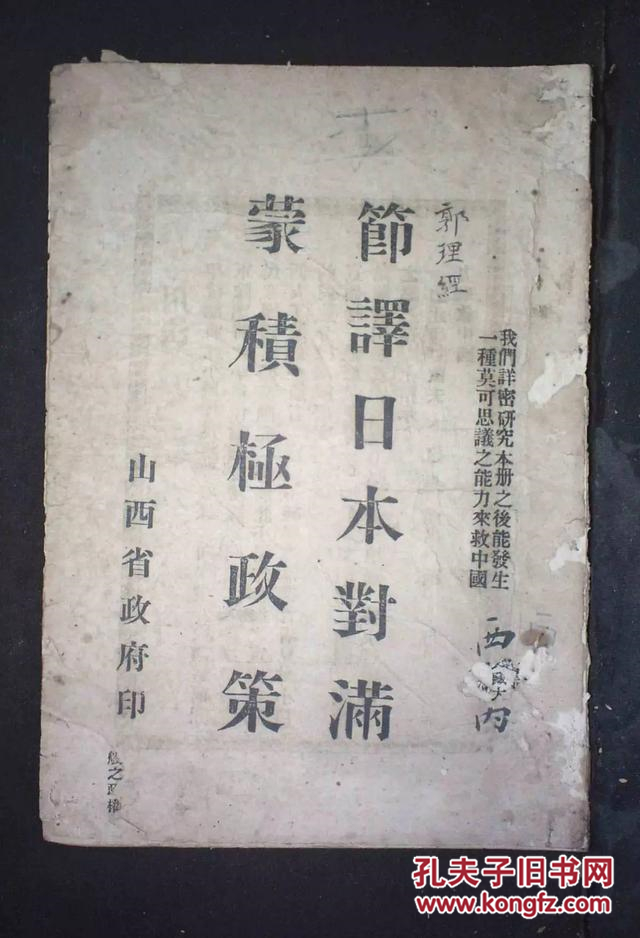 我們詳密研究本册之後能發生
一種莫可思議之能力來救中國
郭理經
節譯日本對滿
蒙積極政策
山西省政府印
西
内
孔夫子旧书网
www.kongfz.com